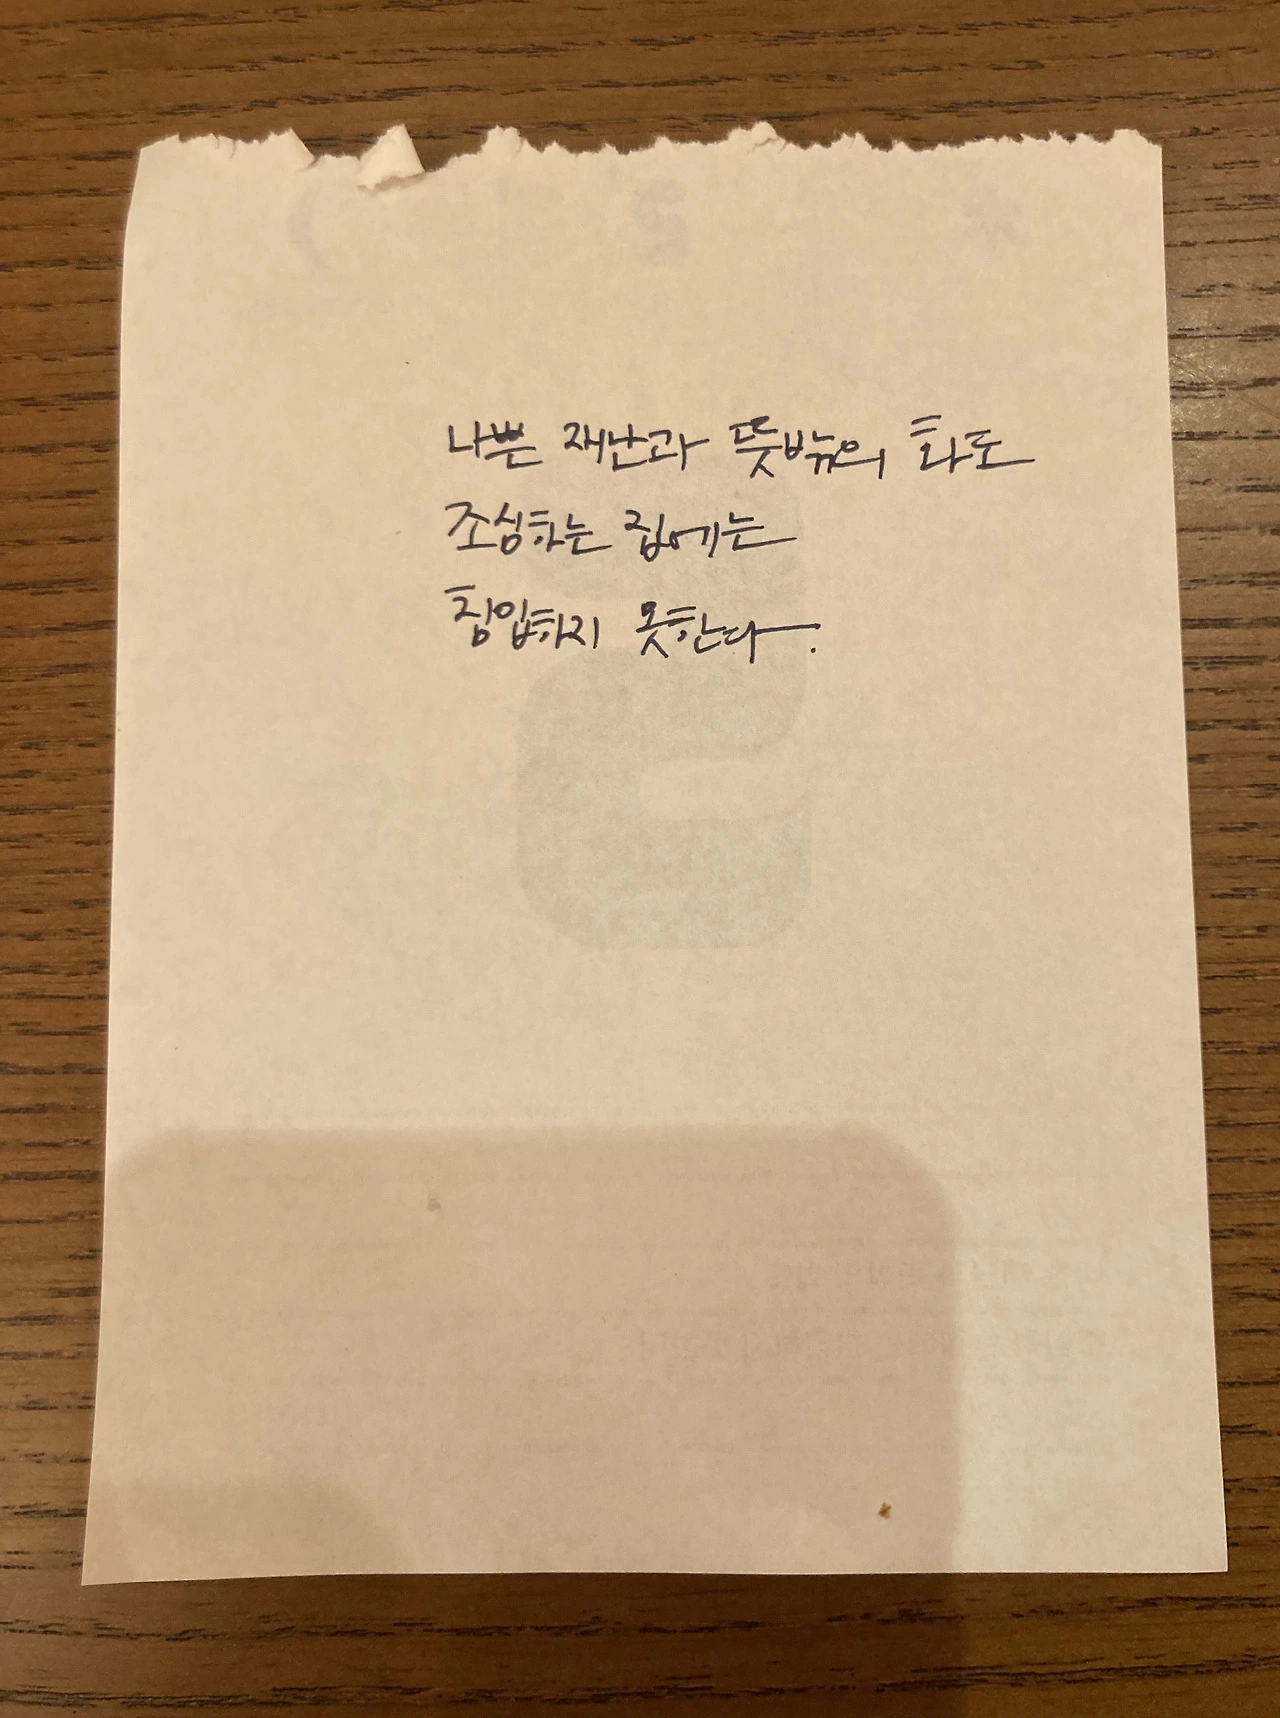 나쁜 재난과 뜻밖의 화도
조심하는 집에는
침입하지 못한다.